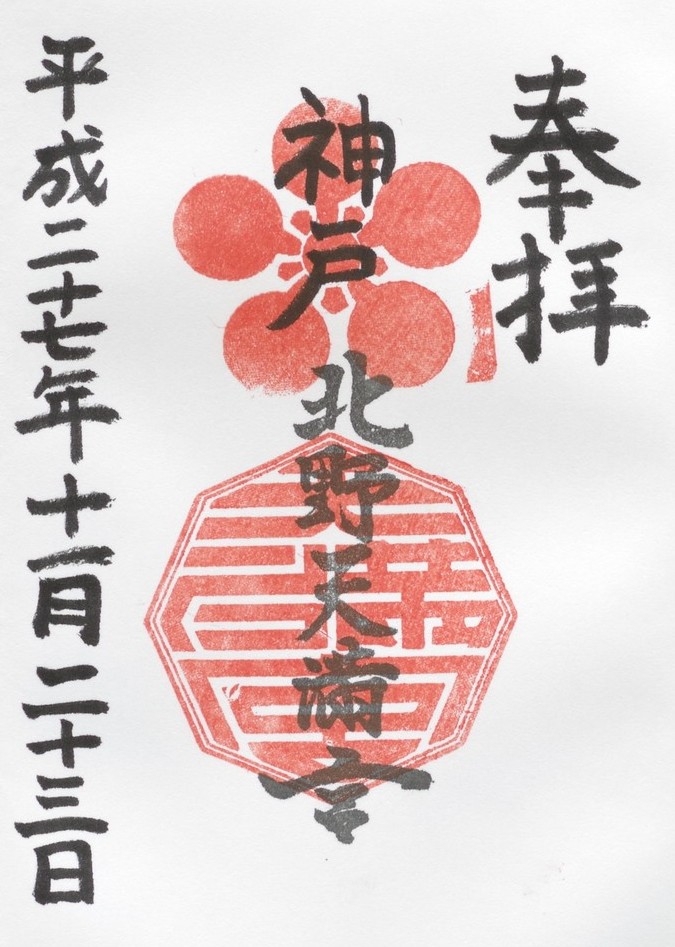 奉拝
神戸
北野天満宮
平成二十七年十一月二十三日